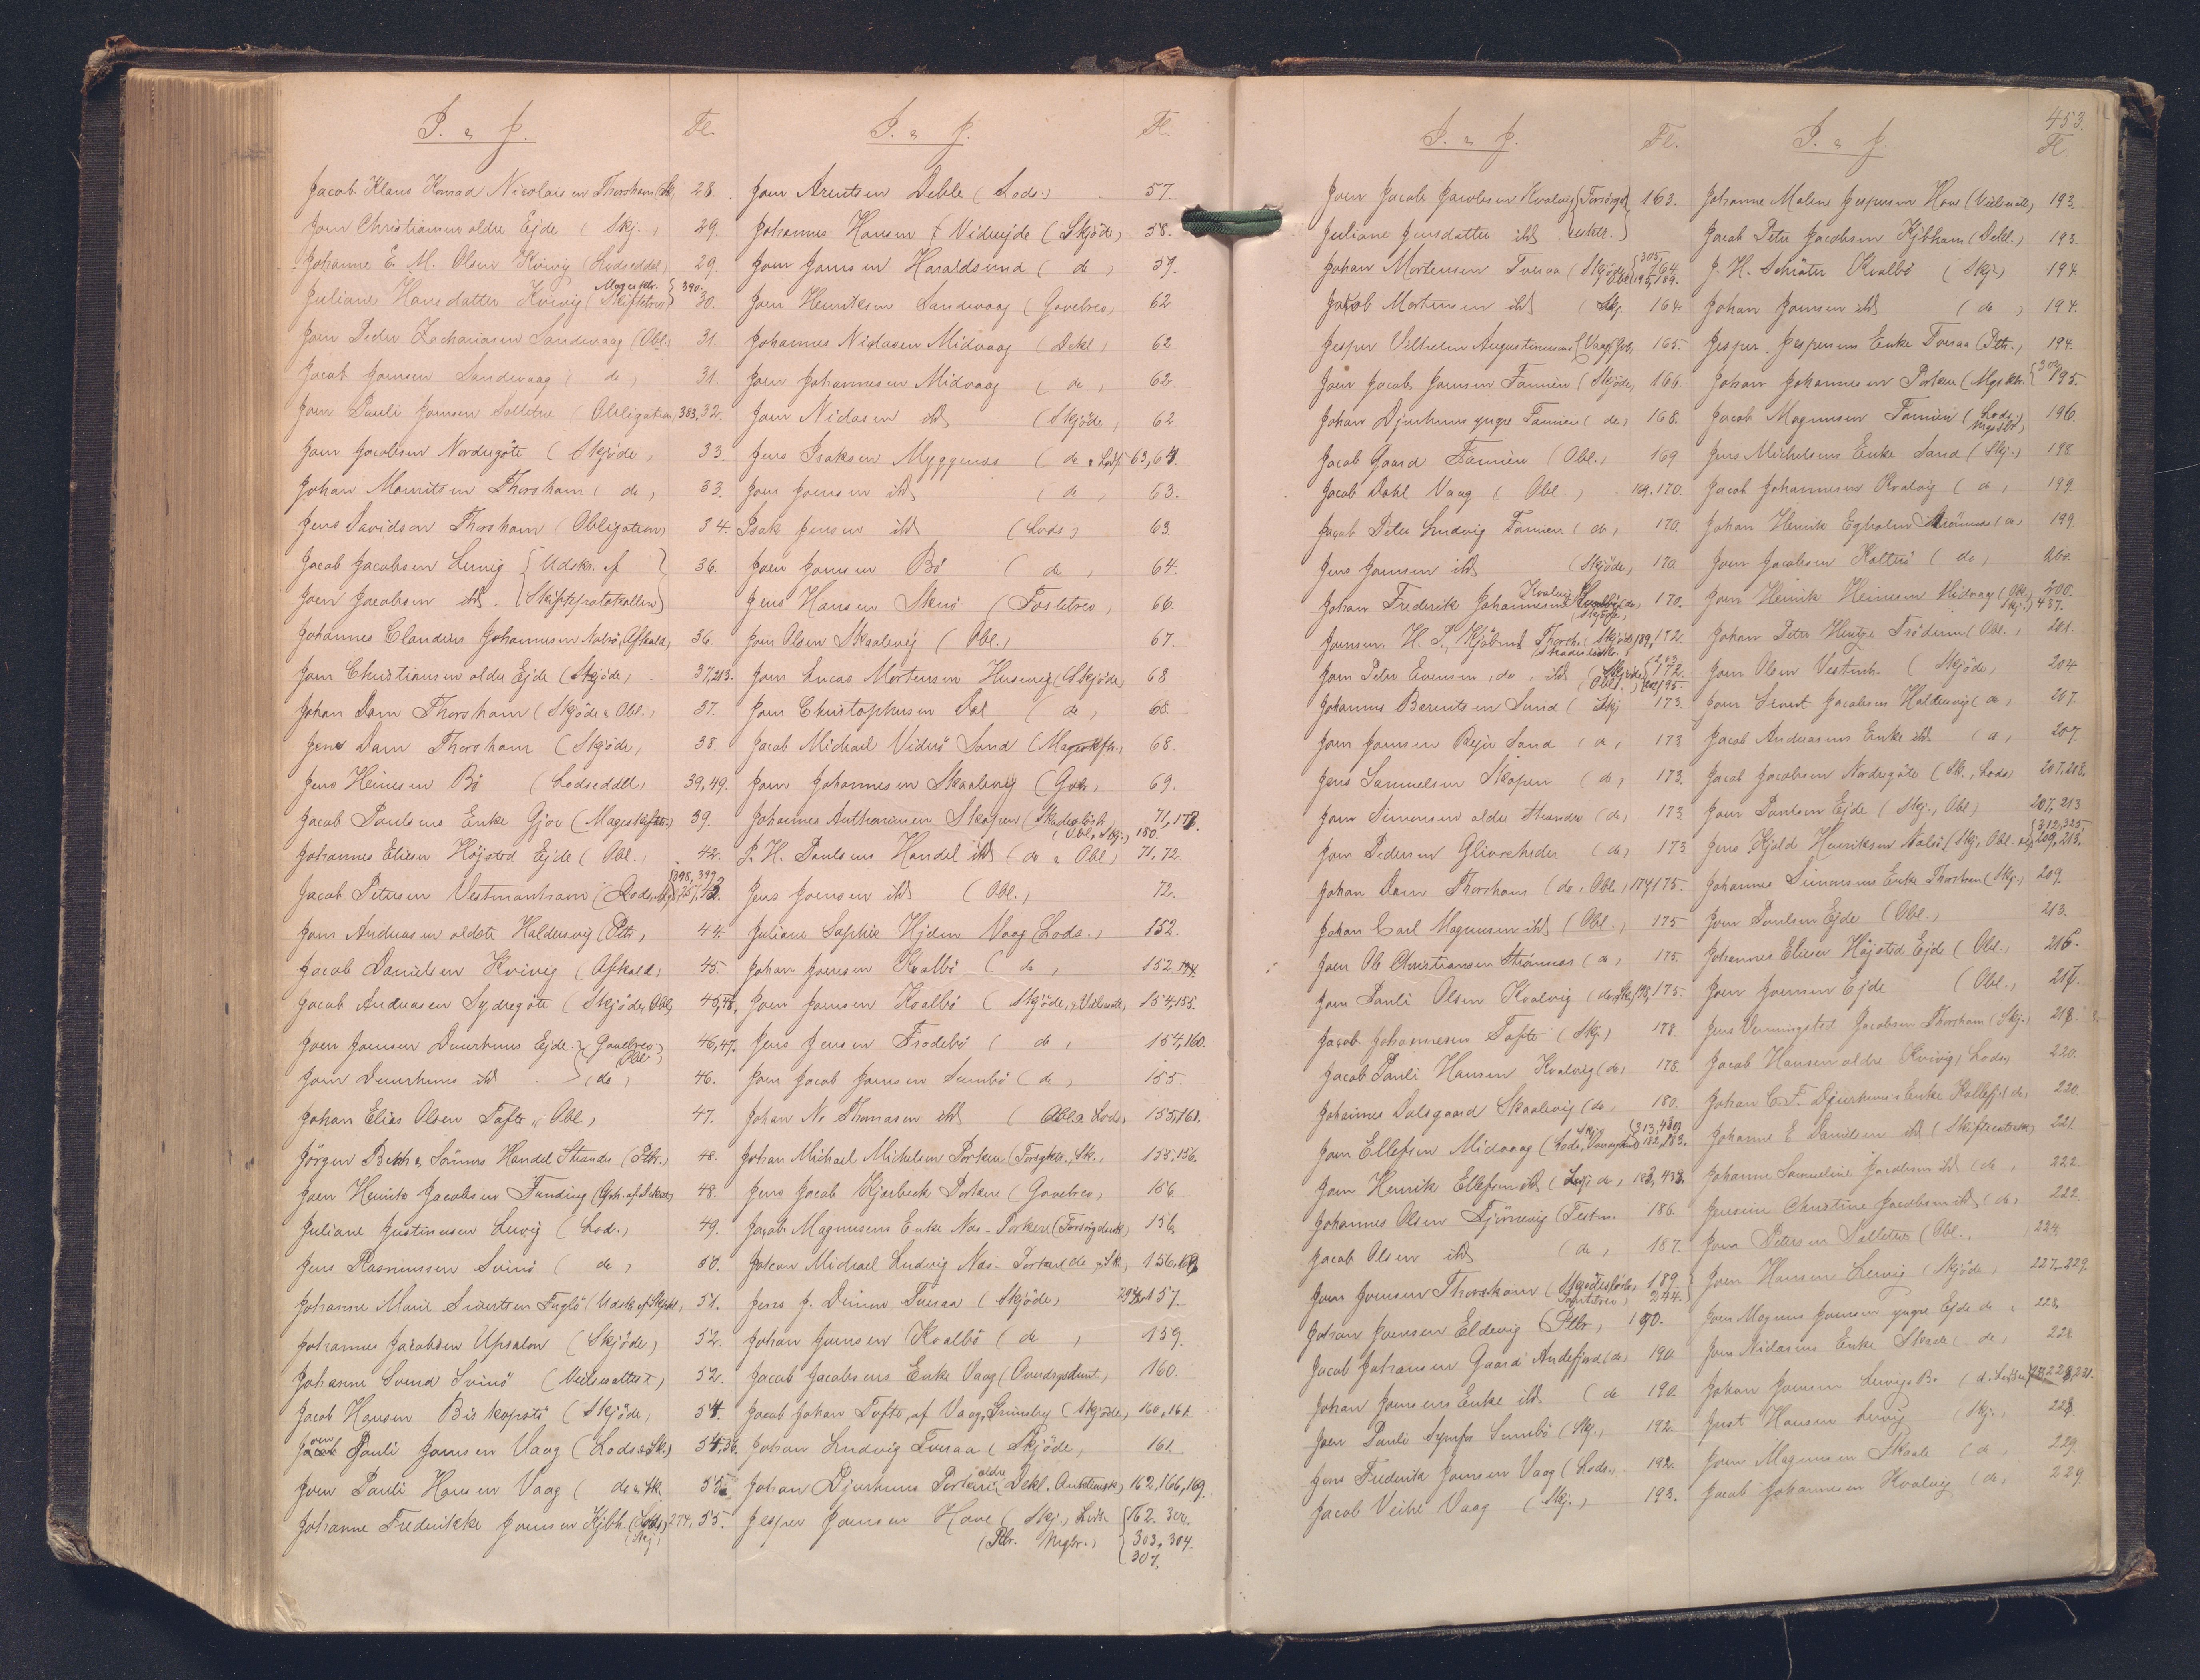 I. & J.
Fl.
Jacob Klaus Konrad Nicolaisen Thorshavn (Sk. 28.
Joen Christiansen ældre Ejde (Skj.) 29.
Johanne E. M. Olsen Kvivig (Lodseddel) 29.
Juliane Hansdatter Kvivig (Skiftebrev) Mageskr. 390. 30.
Joen Peder Zachariasen Sandevaag (Obl.) 31.
Jacob Joensen Sandevaag (do) 31.
Joen Pauli Joensen Selletræ (Obligation) 383, 32.
Joen Jacobsen Nordregöte (Skjöde) 33.
Johan Mouritsen Thorshavn (do) 33.
Jens Davidson Thorshavn (Obligation) 34.
Jacob Jacobsen Lervig {Udskr. af 36.
Joen Jacobsen ibd. {Skifteprotokollen}
Johannes Claudius Johannesen Nolsö (Afkald) 36.
Joen Christiansen ældre Ejde (Skjöde) 37, 213.
Johan Dam Thorshavn (Skjöde & Obl.) 37.
Jens Dam Thorshavn (Skjöde) 38.
Jens Heinesen Bö (Lodseddel) 39, 49.
Jacob Paulsens Enke Gjov (Mageskifte) 39.
Johannes Eliesen Höjsted Ejde (Obl.) 42.
Jacob Petersen Vestmanhavn (Lods. 398, 399 257, 43.
Joen Andreasen ældste Haldersvig (Pttr) 44.
Jacob Danielsen Kvivig (Afkald) 45.
Jacob Andreasen Sydregöte (Skjöde, Obl.) 45, 48.
Joen Joensen Duurhuus Ejde (Gavebrev Obl.) 46, 47.
Joen Duurhuus ibd (do) 46.
Johan Elias Olsen Tofte (Obl.) 47.
Jörgen Bech & Sönners Handel Strande (Pttr.) 48.
Joen Henrik Jacobsen Funding 48.
Juliane Justinesen Lervig (Lod.) 49.
Jens Rasmussen Svinö (do) 50.
Johanne Marie Sivertsen Fuglö (Udskr. af Skpr.) 51.
Johannes Jacobsen Upsalon (Skjöde) 52.
Johanne Svend Svinö 52.
Jacob Hansen Biskopstö (Skjöde) 54.
Joen Pauli Joensen Vaag (Lods & Sk.) 54, 56.
Joen Pauli Hansen Vaag (do & Sk. 55.
Johanne Frederikke Joensen Kjbh. (Lods) (Skj.) 274, 55.
I. & J.
Fl.
Joen Arentsen Deble (Lods.) 57.
Johannes Hansen Viderejde (Skjöde) 58.
Joen Joensen Haraldsund (do) 59.
Joen Henriksen Sandevaag (Gavebrev) 62
Johannes Niclasen Midvaag (Dekl.) 62
Joen Johannesen Midvaag (do) 62.
Joen Niclasen ibd (Skjöde) 62
Jens Isaksen Myggenæs (do & Lods. 63, 64.
Joen Joensen ibd (do) 63.
Isak Jensen ibd (Lods) 63.
Joen Joensen Bö (do) 64.
Jens Hansen Skuö (Festebrev) 66.
Joen Olsen Skaalevig (Obl.) 67.
Joen Lucas Mortensen Husevig (Skjöde) 68
Joen Christophersen Dal (do) 68.
Jacob Michael Viderö Sand (Mageskft.) 68.
Joen Johannesen Skaalevig 69.
Johannes Anthoniussen Skopen (Skadeslösbr. (Obl., Skj.) 71, 178. 180.
J. H. Poulsens Handel ibd (do & Obl.) 71, 72.
Jens Joensen ibd (Obl.) 72.
Juliane Sophie Hjelm Vaag (Lods.) 152.
Johan Joensen Kvalbö (do) 152, 194.
Joen Joensen Kvalbö (Skjöde, & Vielsesatt.) 154, 155.
Jens Jensen Frodebö (do) 154, 160.
Joen Jacob Joensen Sumbö (do) 155.
Johan N. Thomasen ibd (Obl. & Lods) 155, 161.
Johan Michael Michelsen Porkere 155, 156.
Jens Jacob Kjærbech Porkere (Gavebrev) 156
Jacob Magnusens Enke Næs-Porkere 156.
Johan Michael Ludvig Næs-Porkere (do & Sk.) 156, 162.
Jens J. Dinus Tveraa (Skjöde) 157.
Johan Joensen Kvalbö (do) 159.
Jacob Jacobsens Enke Vaag 160.
Jacob Johan Tofte, af Vaag, Grimsby (Skjöde) 160, 161.
Johan Ludvig Tveraa (Skjöde) 161
Johan Djurhuus ældre Porkeri (Dekl. 162, 166, 169.
Jesper Joensen Hove (Skj., Lods. (Pttr. Mgbr.) {162. 302. 303, 304. 307.
I. & J.
Fl.
Joen Jacob Jacobsen Kvalvig {Forsörgel. 163.
Juliane Jensdatter ibd
Johan Mortensen Tveraa (Skjöde, Obl.) {303, 164. 195, 189.
Jacob Mortensen ibd (Skj. 164
Jesper Vilhelm Augustinussen (Vaag) 165.
Joen Jacob Joensen Famien (Skjöde) 166.
Johan Djurhuus yngre Famien (do) 168.
Jacob Gaard Famien (Obl.) 169
Jacob Dahl Vaag (Obl.) 169. 170.
Jacob Peter Ludvig Famien (do) 170.
Jens Joensen ibd (Skjöde) 170.
Johan Frederik Johannesen Kvalvig (Skjöde) 170.
Joensen, H. I., Kjöbmd Thorsh. (Skjöde 189, 172.
Joen Peter Evensen, do, ibd (Skjöde (Obl.) 172. 195.
Johannes Berentsen Sand (Skj 173.
Joen Joensen Reyn Sand (do) 173
Jens Samuelsen Skopen (do) 173.
Joen Simonsen ældre Strande (do) 173
Joen Pedersen Glivrehede (do) 173
Johan Dam Thorshavn (do, Obl.) 174, 175.
Johan Carl Magnussen ibd (Obl.) 175
Joen Ole Christiansen Strömnæs (do) 175.
Joen Pauli Olsen Kvalvig 175.
Jacob Johannesen Tofte (Skj.) 178.
Jacob Pauli Hansen Kvalvig (do) 178.
Johannes Dalsgaard Skaalevig (do) 180.
Joen Ellefsen Midvaag (Lods. 182, 183.
Joen Henrik Ellefsen ibd 183, 438.
Johannes Olsen Tjörnevig (Testm. 186.
Jacob Olsen ibd (do) 187.
Joen Joensen Thorshavn (Skadeslösbr. 189. 244.
Johan Joensen Eldevig (Pttr) 190.
Jacob Johansen Gaard Andefjord (do) 190
Johan Joensens Enke ibd (do 190.
Joen Pauli Symfs Sumbö (Skj.) 192.
Jens Frederik Joensen Vaag (Lods.) 192.
Jacob Veihe Vaag (Skj.) 193.
453.
I. & J.
Fl.
Johanne Malene Jespersen Hove (Vielsesatt.) 193.
Jacob Peter Jacobsen Kjbhavn (Dekl.) 193.
J. H. Schröter Kvalbö (Skj.) 194.
Johan Joensen ibd (do) 194.
Jesper Jespersens Enke Tveraa (Pttr.) 194.
Johan Johannesen Porkeri (Mgskr. {302 195.
Jacob Magnussen Famien (Lods.) 196.
Jens Michelsens Enke Sand (Skj.) 198.
Jacob Johannesen Kvalvig (do) 199.
Johan Henrik Egholm Strömnæs (do) 199.
Joen Jacobsen Kolterö (do) 200.
Joen Henrik Heinesen Midvaag (Obl. Skj.) 200. 437.
Johan Peter Hentze Trödum (Obl.) 201.
Joen Olsen Vestmh. (Skjöde) 204.
Joen Sivert Jacobsen Haldersvig (do) 207.
Jacob Andreasens Enke ibd (do) 207.
Jacob Jacobsen Nordregöte (Sk., Lods) 207, 208.
Joen Poulsen Ejde (Skj., Obl.) 207, 213
Jens Kjeld Henriksen Nolsö (Skj. Obl. {312, 325, 209, 213.
Johannes Simonsens Enke Thorshavn (Skj.) 209.
Joen Poulsen Ejde (Obl.) 213.
Johannes Eliesen Höjsted Ejde (Obl.) 216.
Joen Joensen Ejde (Obl.) 217.
Jens Venningsted Jacobsen Thorshavn (Skj.) 218.
Jacob Hansen ældre Kvivig (Lods) 220.
Johan C. F. Djurhuus's Enke Kollefj. (do) 220.
Johanne E Danielsen ibd 221.
Johanne Samueline Jacobsen ibd (do) 222.
Jensine Christine Jacobsen ibd (do) 222.
Joen Petersen Selletræ (Obl. 224.
Joen Hansen Lervig (Skjöde) 227-229.
Joen Magnus Joensen yngre Ejde do 228.
Joen Niclasens Enke Skaale (do) 228
Johan Joensen Lervig & Bö 228, 231.
Just Hansen Lervig (Skj.) 228
Joen Magnussen Skaale (do 229.
Jacob Johannesen Kvalvig (do) 229